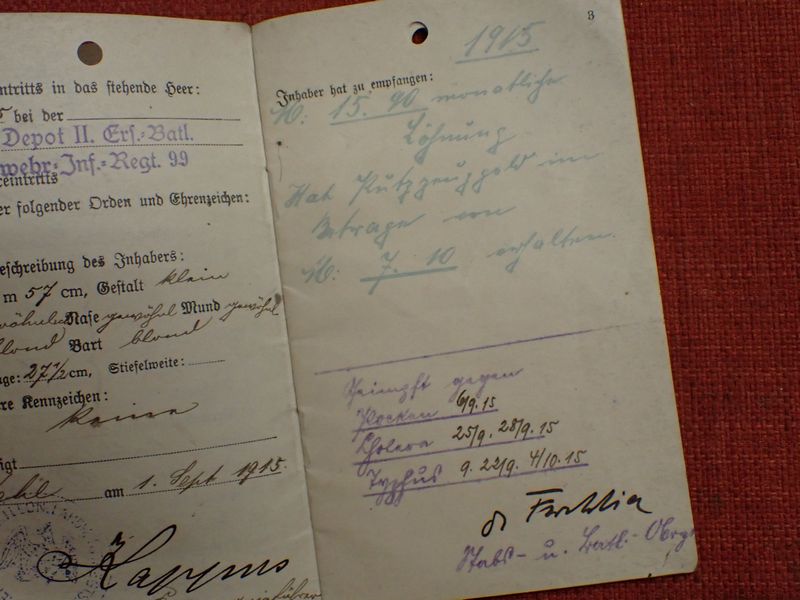 ntritts in das stehende Heer:
5 bei der
Depot II. Ers.-Batl.
wehr-Inf.-Regt. 99
eintritts
er folgender Orden und Ehrenzeichen:
eschreibung des Inhabers:
m 57 cm, Gestalt klein
wöhnl Nase gewöhnl Mund gewöhnl
blond Bart blond
ge: 27 1/2 cm, Stiefelweite:
re Kennzeichen:
keine
igt
am 1. Sept 1915.
Kappus
3
1915
Inhaber hat zu empfangen:
M: 15.90 monatliche
Löhnung
Hat Putzzeuggeld im
Betrage von
M: 7.10 erhalten.
Geimpft gegen
Pocken 6/9.15
Cholera 25/9. 28/9.15
Typhus 9. 22/9. 4/10.15
Stabs- u. Batl.-